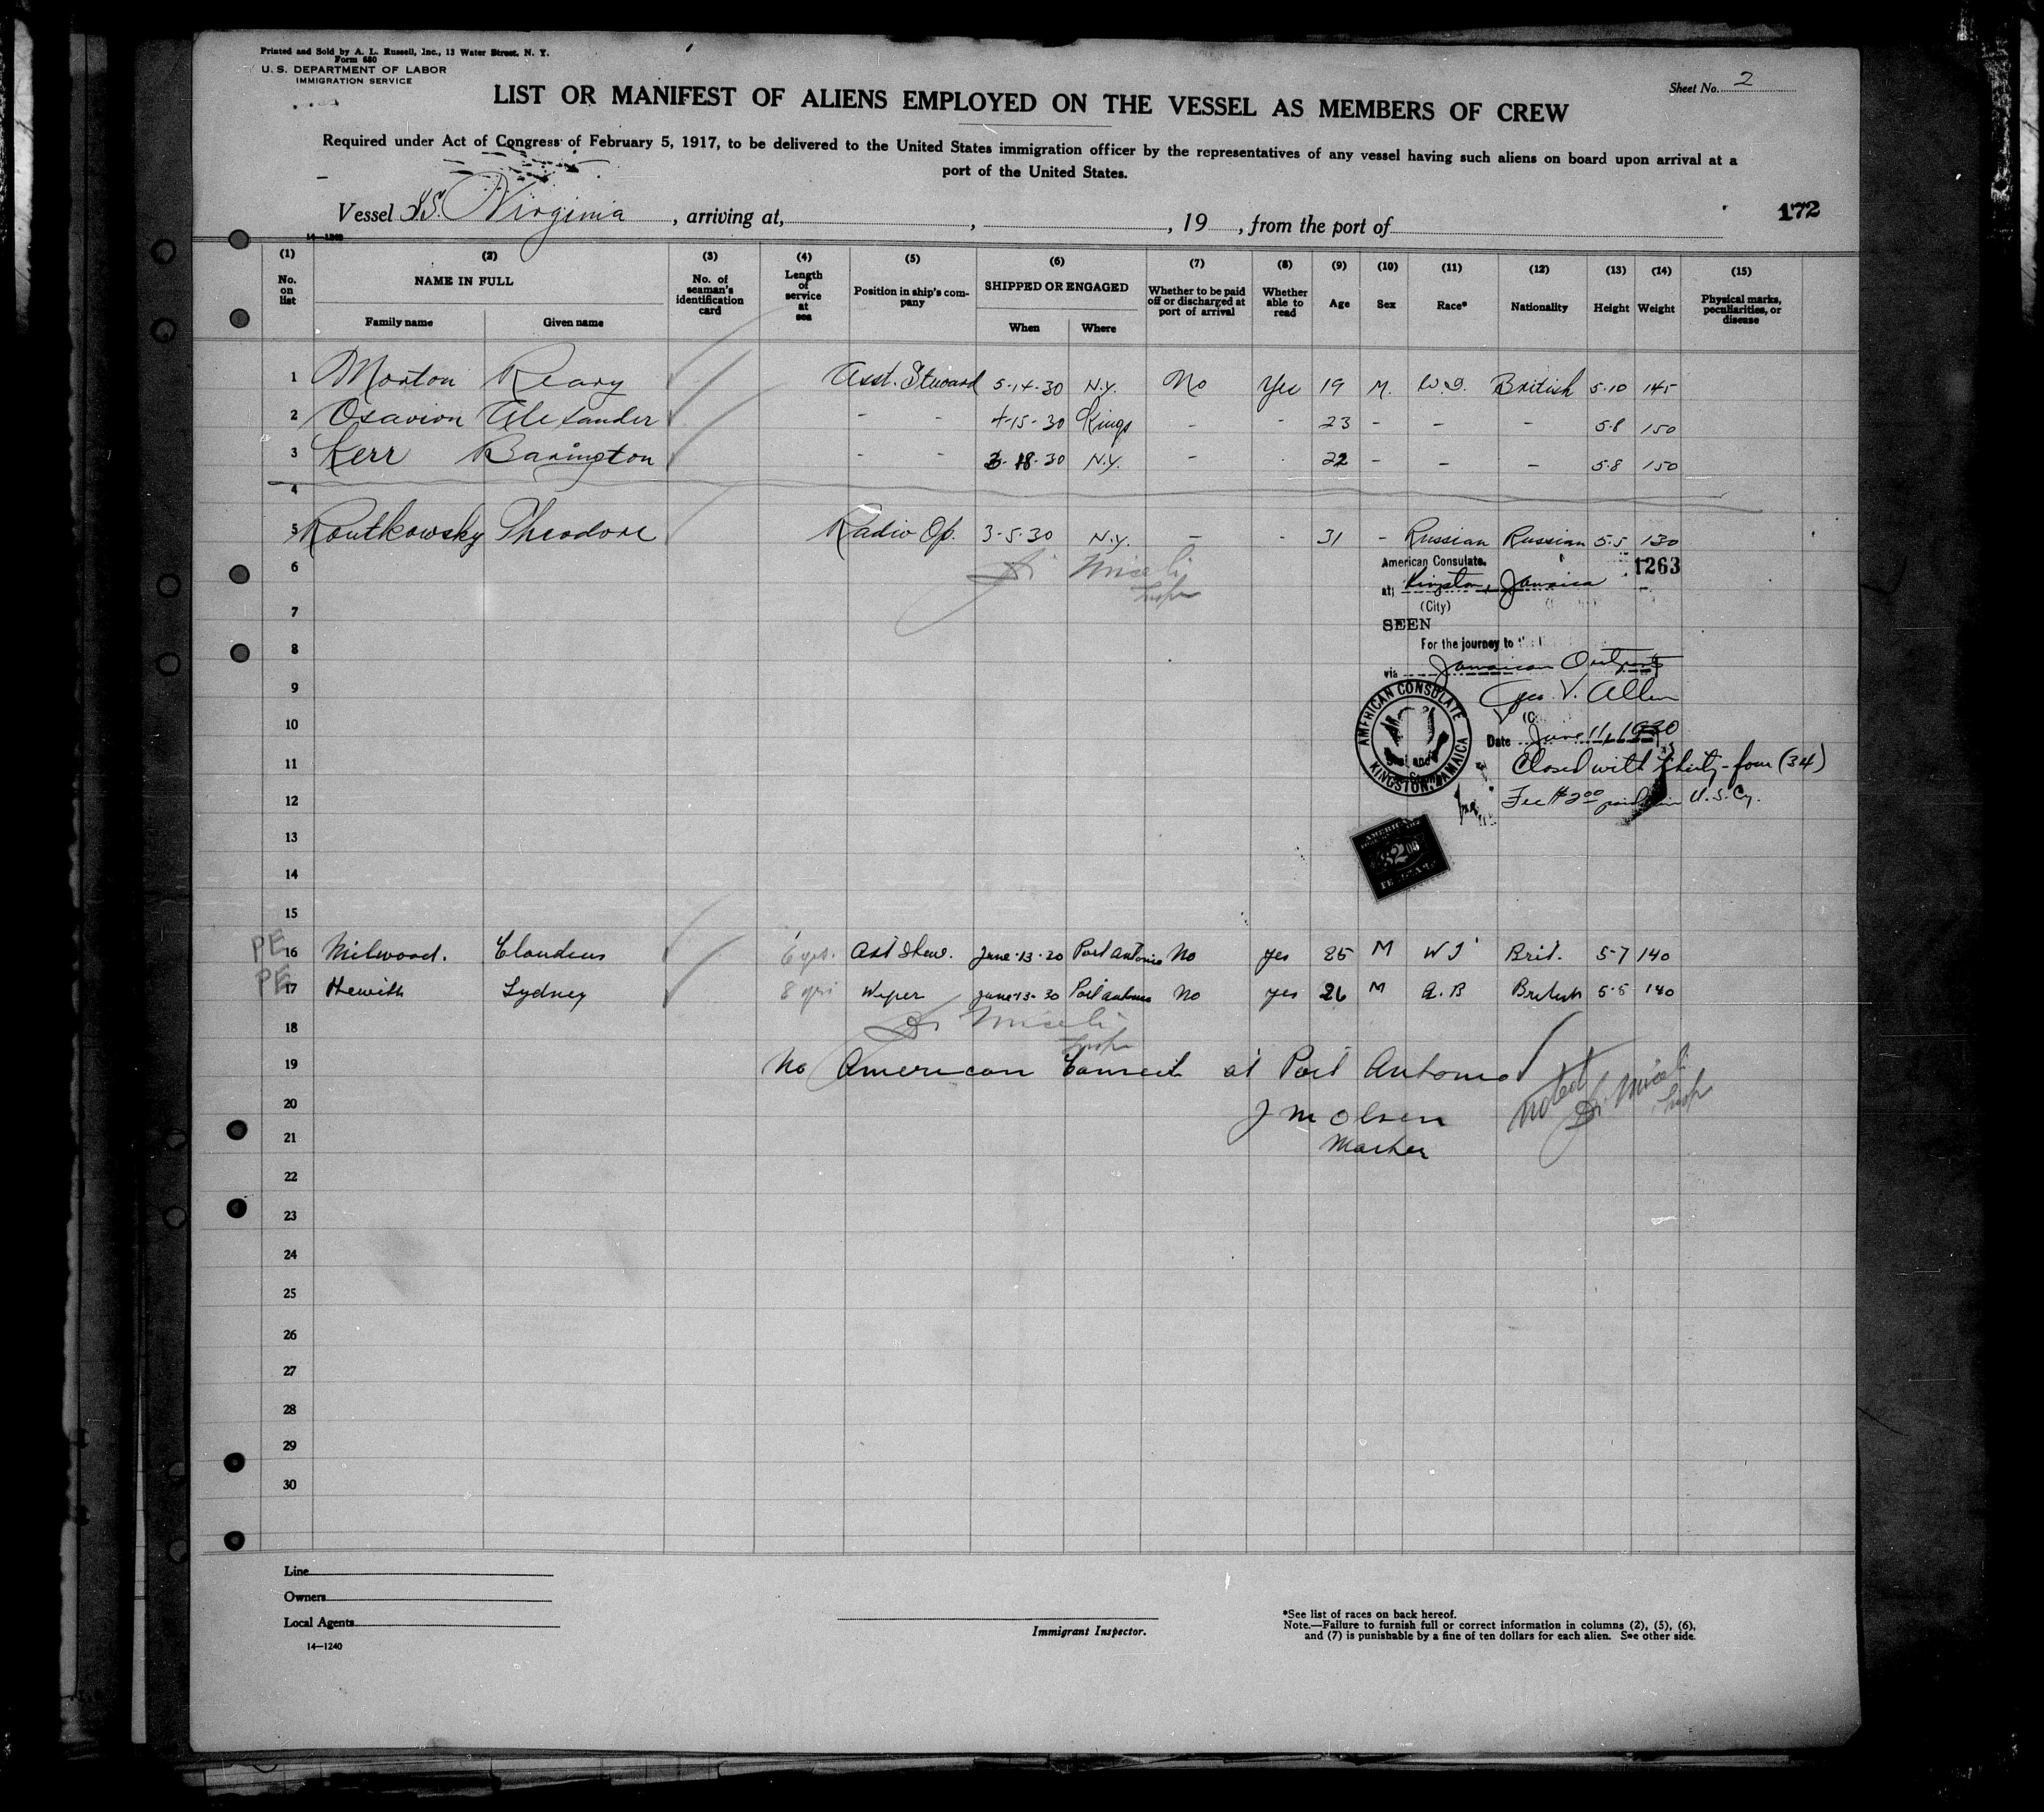 Printed and Sold by A. L. Russell, Inc., 13 Water Street, N. Y.
Form 680
U. S. DEPARTMENT OF LABOR
IMMIGRATION SERVICE
Sheet No. 2
LIST OR MANIFEST OF ALIENS EMPLOYED ON THE VESSEL AS MEMBERS OF CREW
Required under Act of Congress of February 5, 1917, to be delivered to the United States immigration officer by the representatives of any vessel having such aliens on board upon arrival at a
port of the United States.
172
Vessel SS. Virginia, arriving at, , 19 , from the port of
(1) (2) (3) (4) (5) (6) (7) (8) (9) (10) (11) (12) (13) (14) (15)
No. on list NAME IN FULL No. of seaman's identification card Length of service at sea Position in ship's company SHIPPED OR ENGAGED Whether to be paid off or discharged at port of arrival Whether able to read Age Sex Race* Nationality Height Weight Physical marks, peculiarities, or disease
Family name Given name When Where
1 Morton Reary Asst. Steward 5-14-30 N.Y. No Yes 19 M. W.I. British 5-10 145
2 Osavion Alexander - - 4-15-30 Kings - - 23 - - - 5-8 150
3 Kerr Barington - - 3-18-30 N.Y. - 22 - - - 5-8 150
4
5 Routkowsky Theodore Radio Op. 3-5-30 N.Y. - - 31 - Russian Russian 5-5 130
6 Di Miceli American Consulate, 1263
Insp at Kingston, Jamaica
7 (City)
SEEN
8 For the journey to
via Jamaican Outports
9 Geo. V. Allen
10 Date June 11, 1930
AMERICAN CONSULATE KINGSTON, JAMAICA
11 Closed with thirty-four (34)
12 Fee $2.00 paid in U.S. Cy.
13
14
15
PE 16 Milwood. Claudius 6 yrs. Ast Stew. June-13-30 Port Antonio No yes 25 M W I Brit. 5-7 140
PE 17 Hewith Sydney 8 yrs Wiper June-13-30 Port Antonio No yes 26 M A.B British 5-5 140
18 Di Miceli
Insp
19 No American Council at Port Antonio
noted Di Miceli Insp
20 J M Olsen
21 Master
22
23
24
25
26
27
28
29
30
Line
Owners
Local Agents
14—1240
Immigrant Inspector.
*See list of races on back hereof.
Note.—Failure to furnish full or correct information in columns (2), (5), (6),
and (7) is punishable by a fine of ten dollars for each alien. See other side.